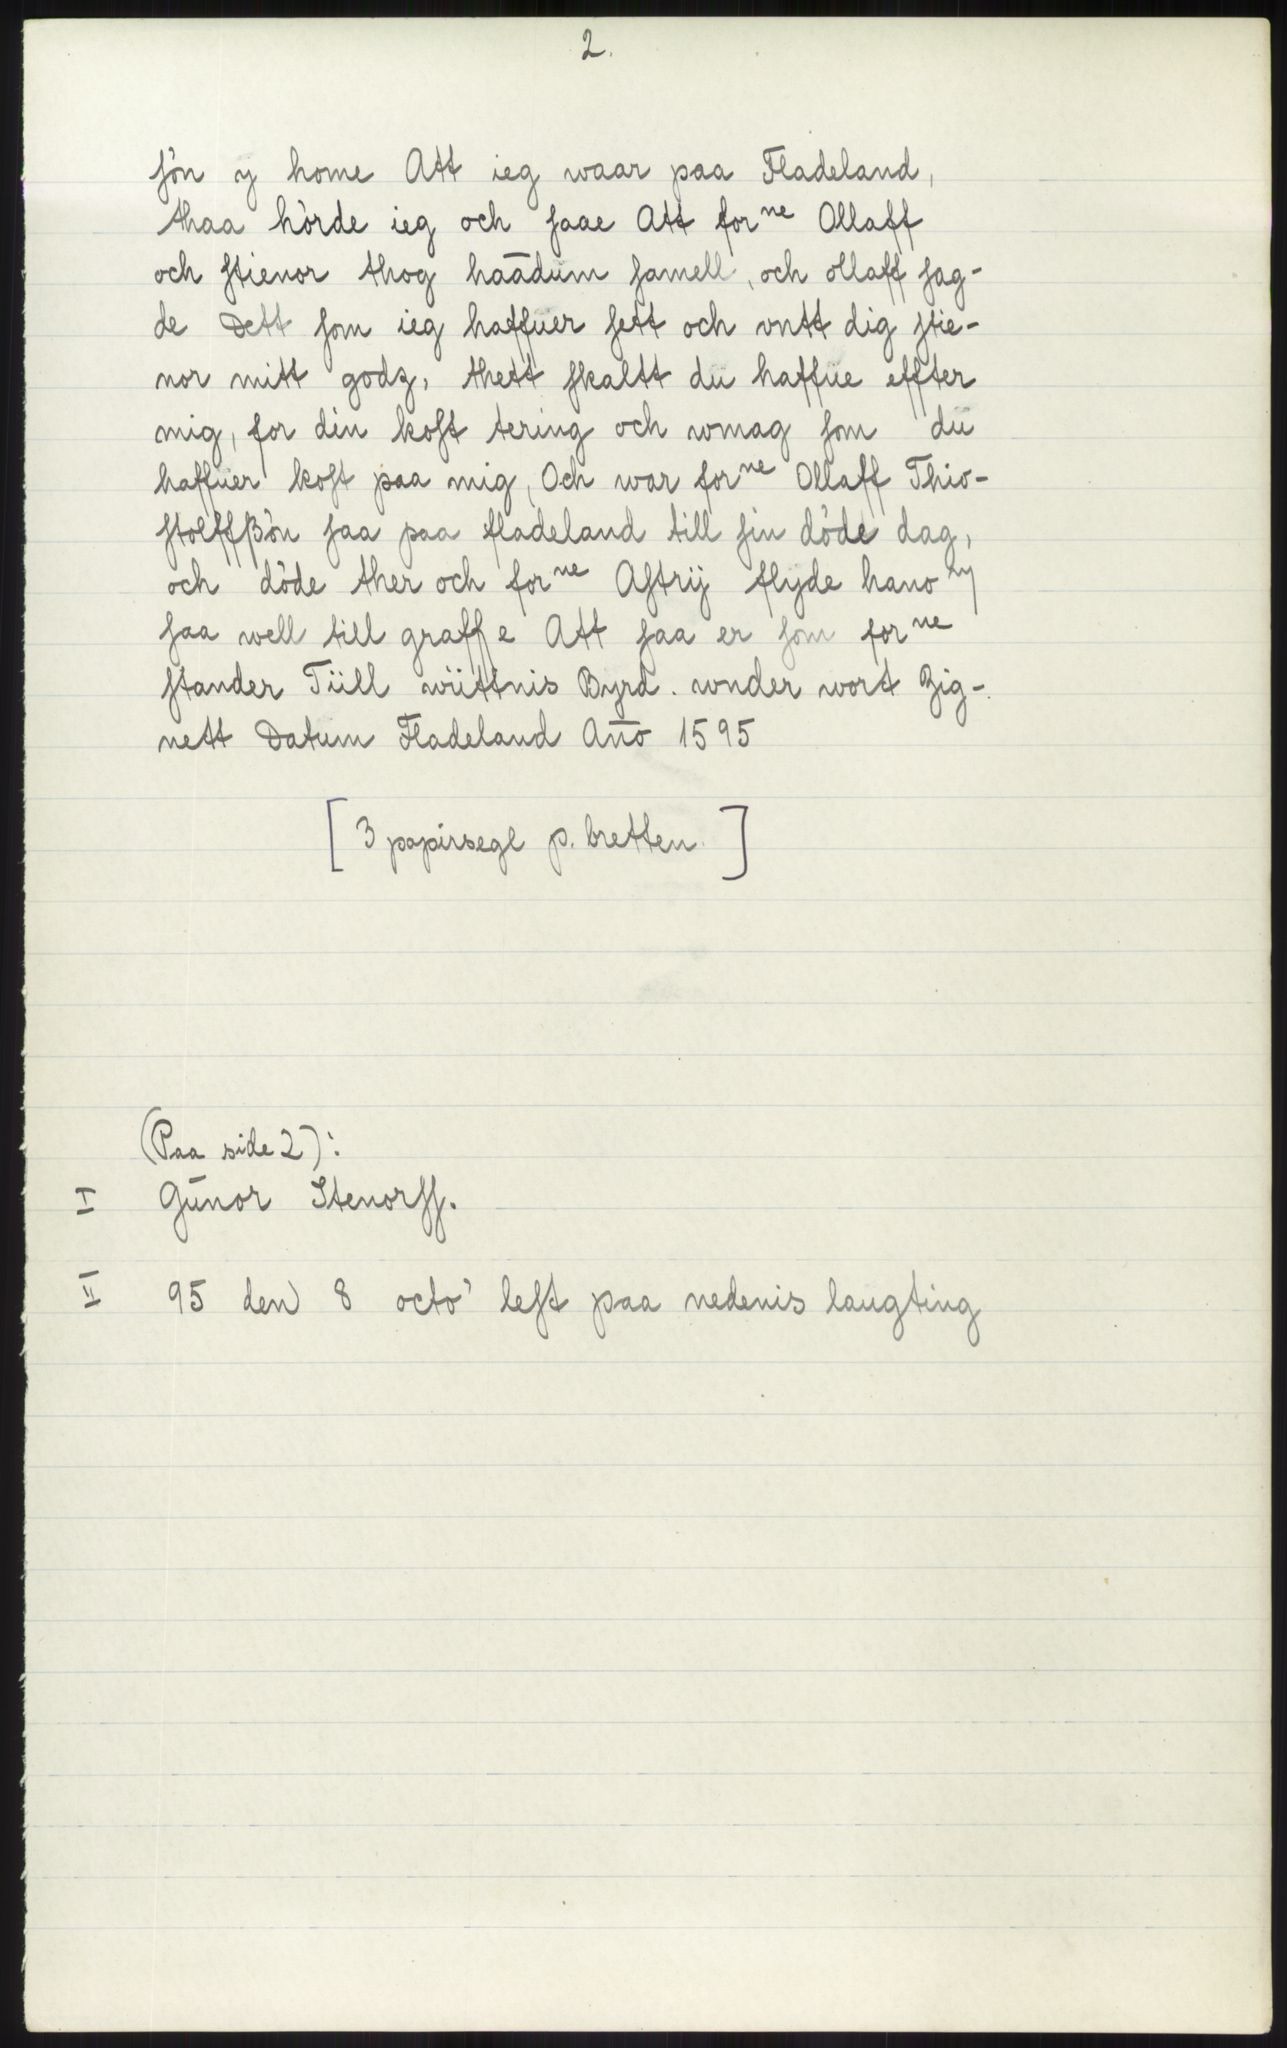 2.
ſòn y home Att ieg waar paa Fladeland,
thaa hòrde ieg och ſaae Att forⁿᵉ Ollaff
och ſtienor thog haādum ſamell, och ollaff ſag-
de Dett ſom ieg haffuer ſett och vntt dig ſtie-
nor mitt godz, thett ſkaltt du haffue effter
mig, for din koſt tering och wmag ſom du
haffuer koſt paa mig, Och war forⁿᵉ Ollaff Thio-
ſtolffßòn ſaa paa fladeland till ſin dòde dag,
och dòde ther och forⁿᵉ Aſtrij flyde hano
ſaa well till graffe Att ſaa er ſom forⁿᵉ
ſtander Tüll wüttnis Byrd. wnder wort Zig-
nett Datum Fladeland Año 1595
[3 papirsegl p. bretten.]
(Paa side 2):
I Gūnor Stenorſſ.
II 95 den 8 octo' leſt paa nedenis laugting